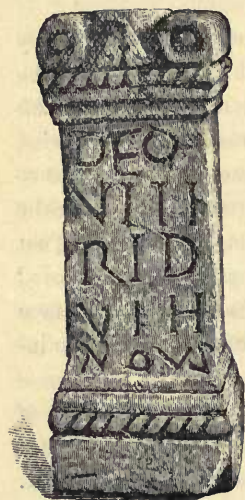 DEO
VIII
RID
VIH
NOW